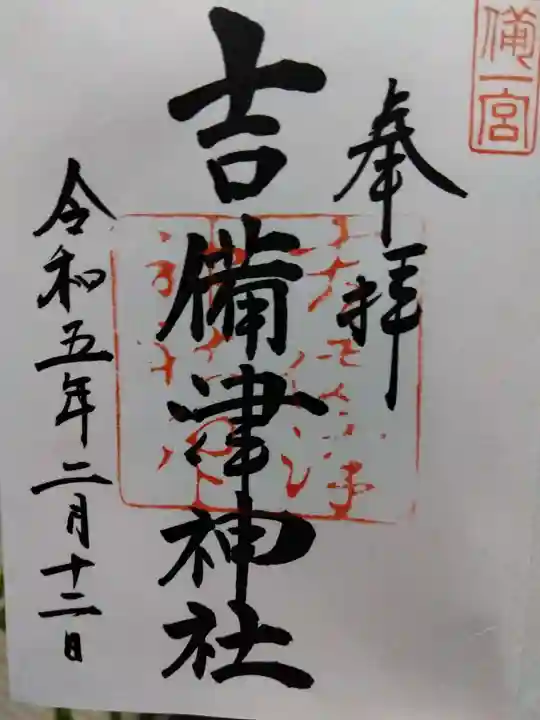 備一宮
奉拝
吉備津神社
令和五年二月十二日